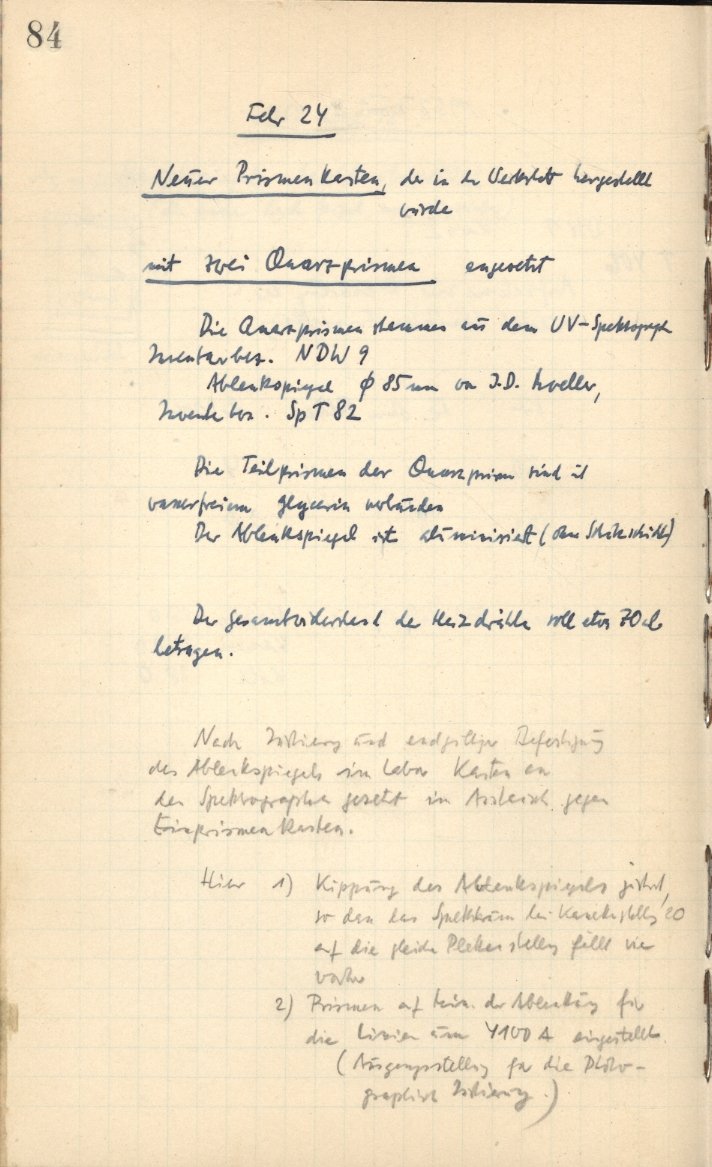 84
Febr 24
Neuer Prismenkasten, der in der Werkstatt hergestellt
würde
mit zwei Quarzprismen angesetzt
Die Quarzprismen stammen aus dem UV-Spektrograph
Inventarbez. NDW 9
Ablenkspiegel ϕ 85 mm von J.D. Moeller,
Inventarbez. SpT 82
Die Teilprismen der Quarzprismen sind mit
wasserfreiem glycerin verbünden
Der Ablenkspiegel ist aluminisiert (ohne Schutzschicht)
Der gesamtwiderstand der Heizdrähte soll etwa 70
betragen.
Nach Justierung und endgültiger Befestigung
des Ablenkspiegels im Labor Kasten an
den Spektrographen gesetzt im Austausch gegen
Einprismenkasten.
Hier 1) Kippüng des Ablenkspiegels justiert,
so dass das Spektrüm bei
auf die gleiche Plattenstellung fällt wie
vorher
2) Prismen auf Minim. der Ablenküng für
die Linien üm 4100 A eingestellt.
(Ausgangsstellung für die Photo-
graphische Justierung.)